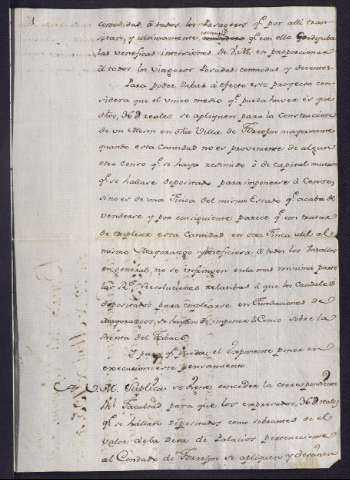 comodidad à todos los Pasageros q.e por alli transi-
tan; y ultimamente q.e con ello
las veneficas intenciones de V.M. en proporcionar
à todos los Viageros Posadas comodas y decentes.
Para poder llebar à efecto este proyecto con-
sidera que el unico medio q.e pueda haver es que
d̃hos, 36D reales se apliquen para la Construccion
de un Meson en dicha Villa de mayormente
quando esta Cantidad no es proveniente de algun
otro Censo q.e se haya redimido ò de capital muerto
q.e se hallare depositado para imponerse à Censo,
sino es de una Finca del mismo Estado q.e acaba de
venderse y por consiguiente parece q.e con tratar
de emplear esta Cantidad en otra Finca util al
mismo Mayorazgo y beneficiosa à todos los Vasallos
en general, no se infringen en la mas minima parte
las R.s Resoluciones relatibas à que los Caudales
depositados para emplearse en Fundaciones de
Mayorazgos, se de imponer à Censo sobre la
Renta del Tabaco.
Y para q.e pueda el exponente poner en
execucion este pensamiento
A V. M. Suplica se digne conceder la correspondiente
R.l Facultad para que los expresados, 36D reales
q.e se hallan depositados como sobrantes de el
valor de la de Palacios perteneciente
al Condado de se apliquen y destinen